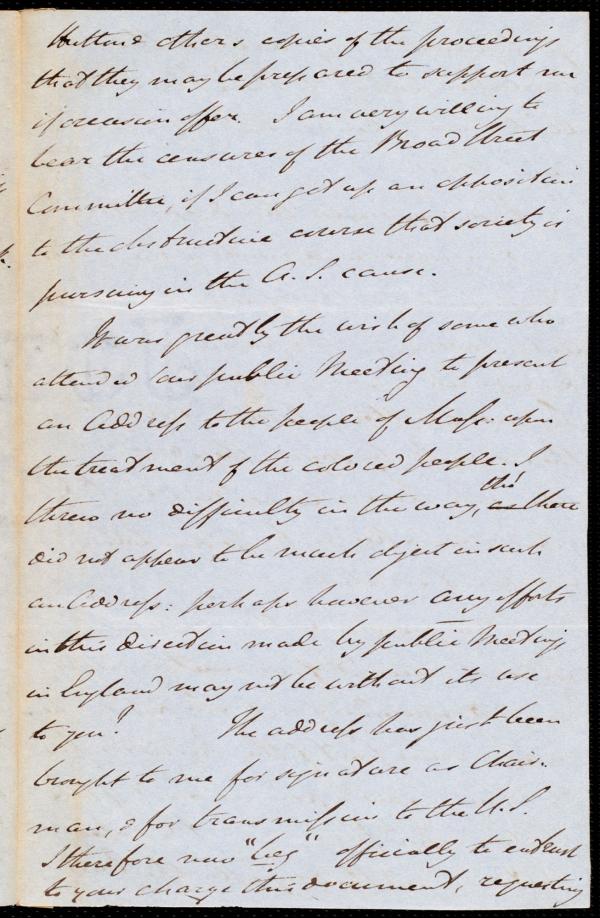 Hutton & others copies of the proceedings
that they may be prepared to support me
if occasion offer. I am very willing to
bear the censures of the Broad Street
Committee, if I can get up an opposition
to the destructive course that society is
pursuing in the A. S. cause.
It was greatly the wish of some who
attended our public Meeting to present
an Address to the people of Mass. upon
the treatment of the colored people. I
threw no difficulty in the way, tho' there
did not appear to be much object in such
an Address: perhaps however any efforts
in this direction made by public Meetings
in England may not be without its use
to you? The address has just been
brought to me for signature as Chair-
man, & for transmission to the U.S.
I therefore now "beg" officially to entrust
to your charge this document, requesting